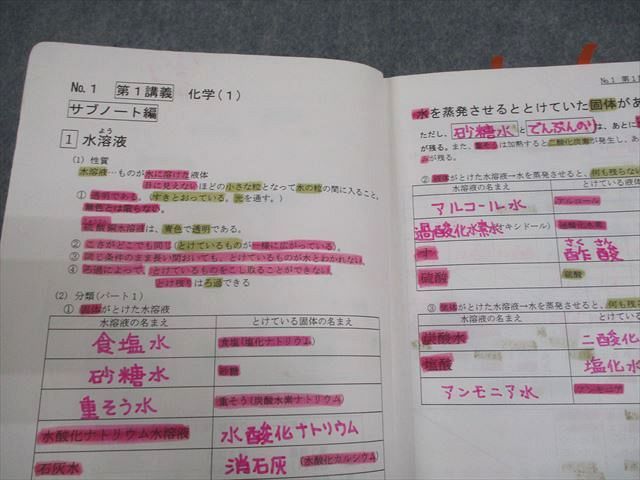 No.1 第1講義 化学(1)
サブノート編
1 水溶液
よう
(1) 性質
水溶液…ものが水に溶けた液体
目に見えないほどの小さな粒となって水の粒の間に入ること。
① 透明である。(すきとおっている。光を通す。)
無色とは限らない。
硫酸銅水溶液は、青色で透明である。
② こさがどこでも同じ(とけているものが一様に広がっている)。
③ 同じ条件のまま長い間おいても、とけているものが水とわかれない。
④ ろ過によって、とけているものをこし取ることができない。
とけ残りはろ過できる
(2) 分類(パート1)
① 固体がとけた水溶液
水溶液の名まえ とけている固体の名まえ
食塩水 食塩(塩化ナトリウム)
砂糖水 砂糖
重そう水 重そう(炭酸水素ナトリウム)
水酸化ナトリウム水溶液 水酸化ナトリウム
石灰水 消石灰(水酸化カルシウム)
No.1 第1
水を蒸発させるととけていた固体があ
ただし、砂糖水とでんぷんのりは、あとに
が残る。また、重そうは加熱すると二酸化炭素が発生し、あ
みが残る。
② 液体がとけた水溶液→水を蒸発させると、何も残らない
水溶液の名まえ とけている液体
アルコール水 アルコール
過酸化水素水(オキシドール) 過酸化水素
す 酢酸
さく さん
硫酸 硫酸
③ 気体がとけた水溶液→水を蒸発させると、何も残
水溶液の名まえ とけてい
炭酸水 二酸化
塩酸 塩化水
アンモニア水 アンモニア